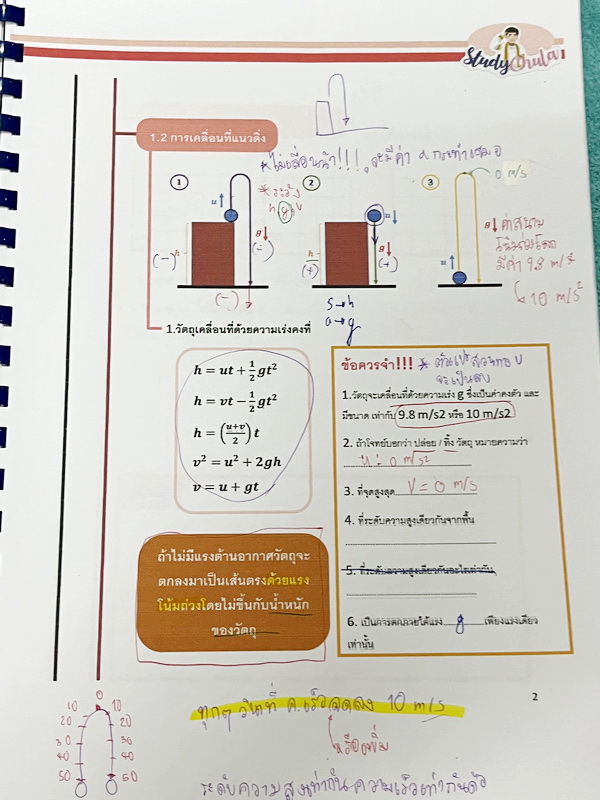 StudyChula
1.2 การเคลื่อนที่แนวดิ่ง
0 m/s
1
2
3
u
u
g
h
(-)
(-)
(-)
g
h
(+)
(+)
u
g
ค่าสนาม
มีค่า 9.8 m/s²
10 m/s²
s → h
a → g
1.วัตถุเคลื่อนที่ด้วยความเร่งคงที่
h = ut + 1/2 gt²
h = vt − 1/2 gt²
h = (u+v/2) t
v² = u² + 2gh
v = u + gt
ข้อควรจำ!!!
1.วัตถุจะเคลื่อนที่ด้วยความเร่ง g ซึ่งเป็นค่าคงตัว และ
มีขนาด เท่ากับ 9.8 m/s2 หรือ 10 m/s2
2. ถ้าโจทย์บอกว่า ปล่อย / ทิ้ง วัตถุ หมายความว่า
u = 0 m/s²
3. ที่จุดสูงสุด V = 0 m/s
4. ที่ระดับความสูงเดียวกันจากพื้น
5. ที่ระดับความสูงเดียวกันอะไรเท่ากัน
6. เป็นการตกภายใต้แรง g เพียงแรงเดียว
เท่านั้น
ถ้าไม่มีแรงต้านอากาศวัตถุจะ
ตกลงมาเป็นเส้นตรงด้วยแรง
โน้มถ่วงโดยไม่ขึ้นกับน้ำหนัก
ของวัตถุ
2
ทุกๆ วินาที่ ค.เร็วจะลดลง 10 m/s
หรือเพิ่ม
0
10 10
20 20
30 30
40 40
50 50
ระดับความสูงเท่ากัน ความเร็วเท่ากันด้วย